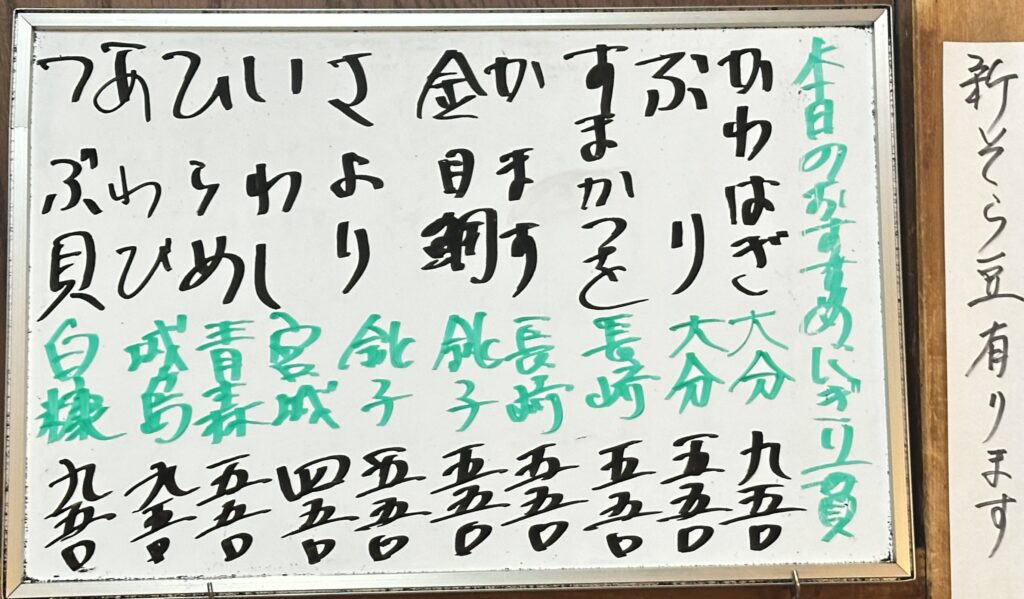 新そら豆有ります
本日のおすすめにぎり一貫
かわはぎ 大分 九五〇
ぶり 大分 五五〇
すまかつを 長崎 五五〇
かます 長崎 五五〇
金目鯛 銚子 五五〇
さより 銚子 五五〇
いわし 宮城 四五〇
ひらめ 青森 五五〇
あわび 九五〇
つぶ貝 白糠 九五〇